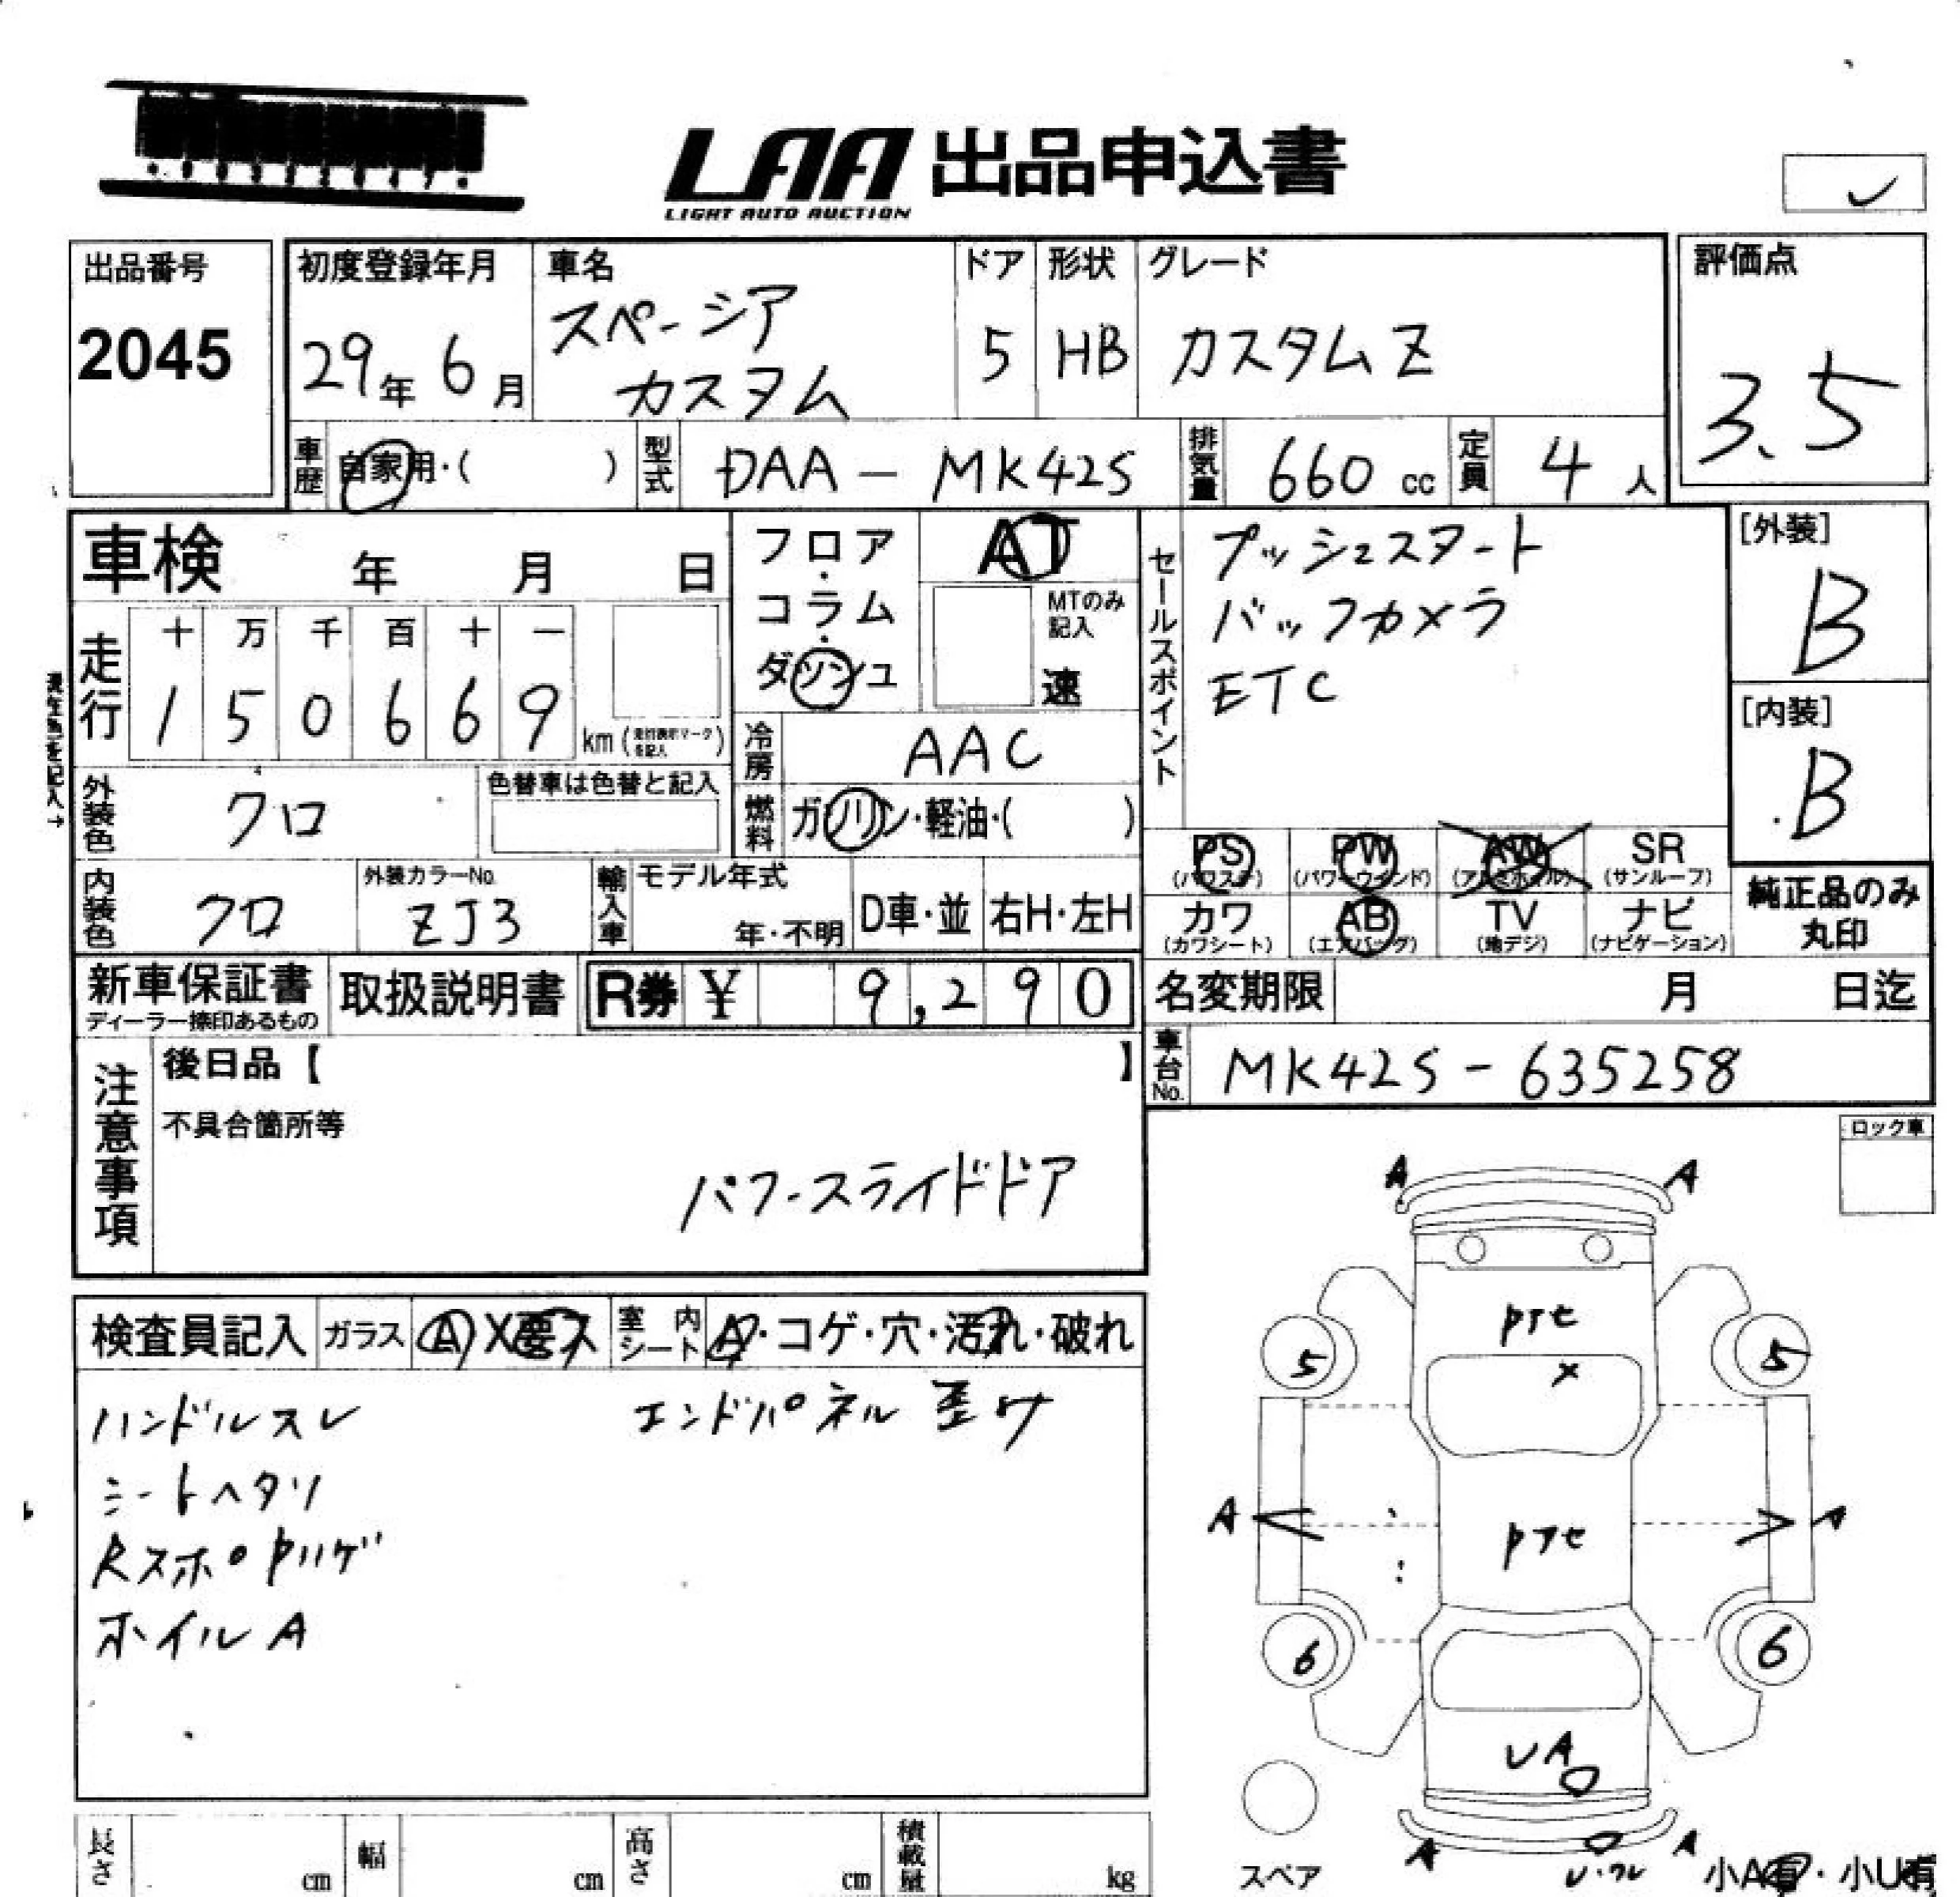 LAA 出品申込書
LIGHT AUTO AUCTION
出品番号
2045
初度登録年月
29年 6月
車名
スペーシア
カスタム
ドア
5
形状
HB
グレード
カスタムZ
評価点
3.5
車歴
自家用・( )
型式
DAA-MK42S
排気量
660 cc
定員
4 人
車検 年 月 日
走行
十 万 千 百 十 一
1 5 0 6 6 9
km
フロア・コラム・ダッシュ
AT
MTのみ
記入
速
冷房
AAC
燃料
ガソリン・軽油・( )
外装色
クロ
色替車は色替と記入
内装色
クロ
外装カラーNo.
ZJ3
輸入車
モデル年式
年・不明
D車・並
右H・左H
セールスポイント
プッシュスタート
バックカメラ
ETC
[外装]
B
[内装]
B
PS
(パワステ)
PW
(パワーウインド)
AW
(アルミホイル)
SR
(サンルーフ)
カワ
(カワシート)
AB
(エアバッグ)
TV
(地デジ)
ナビ
(ナビゲーション)
純正品のみ
丸印
新車保証書
ディーラー捺印あるもの
取扱説明書
R券 ¥ 9,290
名変期限 月 日迄
車台No.
MK42S-635258
注意事項
後日品【 】
不具合箇所等
パワースライドドア
ロック車
検査員記入
ガラス
A X 要ス
室内
シート
A・コゲ・穴・汚れ・破れ
ハンドルスレ
シートヘタリ
RスポPハゲ
ホイルA
エンドパネル歪ケ
A A
Pアセ
X
5 5
A A
Pアセ
6 6
UA
A A
スペア
小A有・小U有
長さ cm
幅 cm
高さ cm
積載量 kg